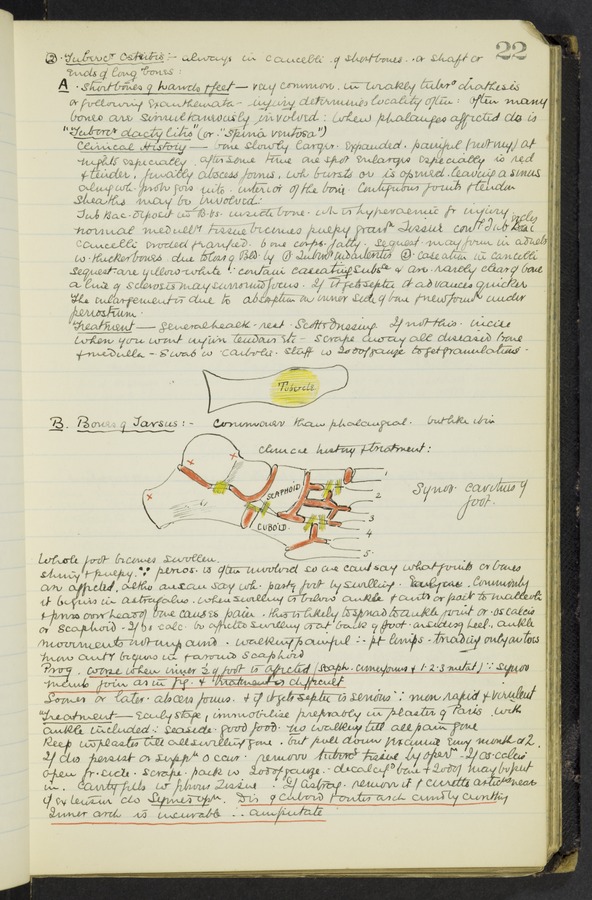 22
② Tubercr Osteitis :- always in cancelli of short bones . or shaft or
ends of long bones :
A . Short bones of hands & feet — very common . in weakly tuberr diathesis
or following Exanthemata - injury determines locality often : often many
bones are simultaneously involved : when phalanges affected dis is
"Tubercr dactylitis" (or "Spina ventosa")
Clinical History — bone slowly larger . Expanded . painful (not very) at
nights especially . after some time one spot enlarges especially is red
& tender , finally abscess forms , wh bursts or is opened . leaving a sinus
along wh. probe goes into interior of the bone . Contiguous joints & tendon
sheaths may be involved :
Tub Bac. deposit in B.vs. inside bone . wh is hyperaemic fr injury
normal medully tissue becomes pulpy gran tissue cont Tub Bac
Cancelli eroded & rarefied . bone corps. fatty . sequest may form in
in thicker bones due to loss of Bld by ① Tuberr Endarteritis ② caseation in cancelli
Sequest are yellow white : contain caseating subs & are rarely clear of bone
a line of sclerosis may surround focus . If it gets septic it advances quicker
The enlargement is due to absorption on inner side of bone & new found under
periosteum .
Treatment — general health - rest - Scotts Dressing If not this . incise
when you wont injure tendons etc - scrape away all diseased bone
& medulla - Swab w Carbolic . stuff w Iodof gauze to get granulations -
Tubercle
B. Bones of Tarsus : - Commoner than phalangeal . but like it in
clinical history & treatment :
SCAPHOID
CUBOID.
1
2
3
4
5
Synov. cavities of
foot .
Whole foot becomes swollen .
shiny & pulpy . ∵ perios. is often involved so we cant say what joints or bones
are affected , altho we can say wh. part of foot by swelling . Commonly
it begins in astragalus . when swelling is below ankle & antr or post to malleoli
& press over head of bone causes pain . this is likely to spread to ankle joint or os calcis
or scaphoid . If os calc. be affected swelling is at back of foot . including heel , ankle
movements not impaird . walking painful :- pt limps - treading only on toes
more antr begins in & around Scaphoid
Prog . worse when inner ½ of foot is affected (scaph . cuneiforms & 1.2.3 metat) ∵ synov
membs join as in fig . & treatment is difficult
Sooner or later . abscess forms . & if it gets septic is serious ∵ more rapid & virulent
Treatment — Early stage , immobilise preferably in plaster of Paris . with
ankle included : seaside . good food . no walking till all pain gone
Keep in plaster till all swelling gone . but pull down & examine every month or 2 .
If dis persist or suppn occur . remove tuberr tissue by opern . If os calcis
open fr. side . scrape . pack w Iodof gauze . decalcifd bone & Iodof may be put
in . cavity fills w fibrous tissue : If Astrag . remove it & curette articns near
If extensive dis Syme's opn . Dis of cuboid & outer arch curably curetting
Inner arch is incurable ∴ amputate